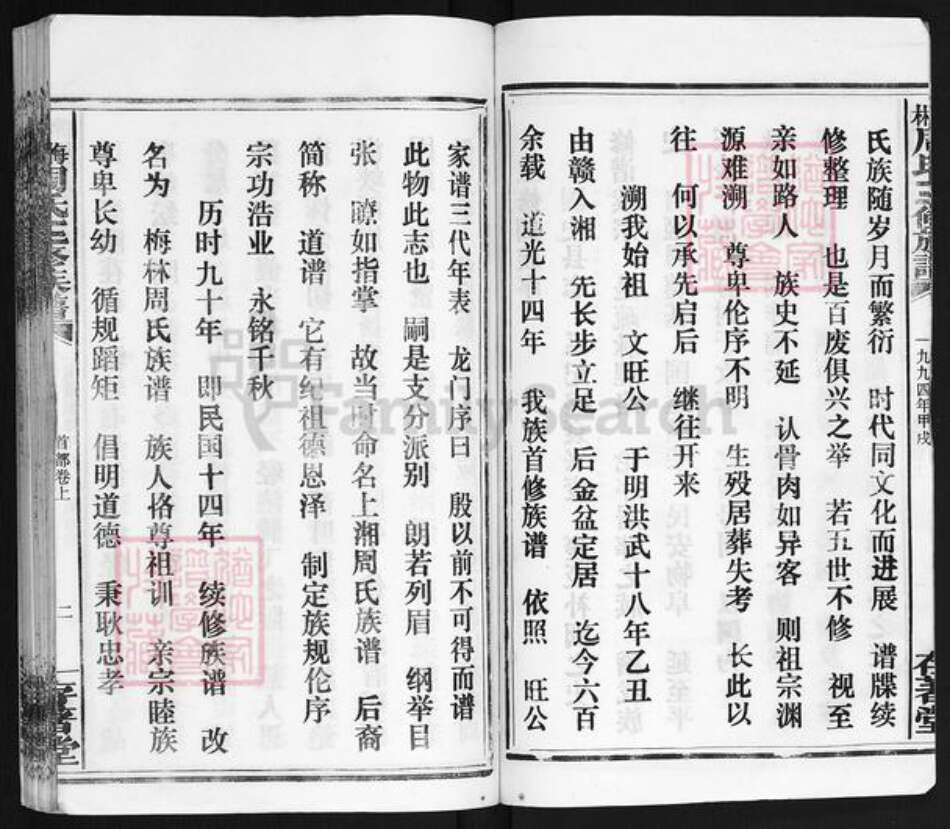 周氏三修族譜
一九九四年甲戌
氏族随岁月而繁衍 时代同文化而进展 谱牒续
修整理 也是百废俱兴之举 若五世不修 视至
亲如路人 族史不延 认骨肉如异客 则祖宗渊
源难溯 尊卑伦序不明 生殁居葬失考 长此以
往 何以承先启后 继往开来
溯我始祖 文旺公 于明洪武十八年乙丑
由赣入湘 先长步立足 后金盆定居 迄今六百
余载 道光十四年 我族首修族谱 依照 旺公
家谱三代年表 龙门序曰 殷以前不可得而谱
此物此志也 嗣是支分派别 朗若列眉 纲举目
张 瞭如指掌 故当时命名上湘周氏族谱 后裔
简称 道谱 它有纪祖德恩泽 制定族规伦序
宗功浩业 永铭千秋
历时九十年 即民国十四年 续修族谱 改
名为 梅林周氏族谱 族人挌尊祖训 亲宗睦族
尊卑长幼 循规蹈矩 倡明道德 秉耿忠孝
首部卷上
二
FamilySearch